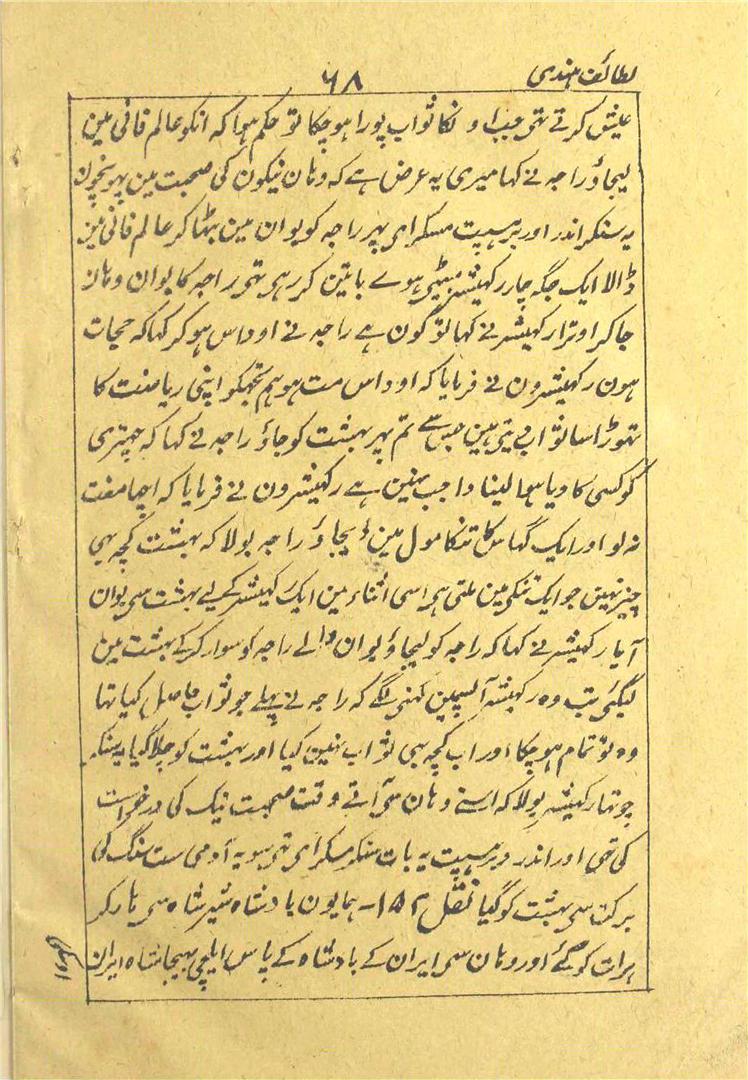 لطائف ہندی ۶۸
عیش کرتے تھی جب او نکا ثواب پورا ہو چکا تو حکم ہوا کہ انکو عالم فانی مین
لیجاؤ راجہ نے کہا میری یہ عرض ہے کہ وہان نیکون کی صحبت مین پہونچون
یہ سنکر اندر اور برہسپت مسکرای پہر راجہ کو بوان مین بٹھا کر عالم فانی مین
ڈالا ایک جگہ چار رکھیشر بیٹھی ہوے باتین کر رہی تھی راجہ کا بوان وہان
جا کر اوترا رکھیشر نے کہا تو کون ہے راجہ نے اوداس ہو کر کہا کہ
ہون رکھیشرون نے فرمایا کہ اوداس مت ہو ہم تجھکو اپنی ریاضت کا
تہوڑا سا ثواب دیتی ہین جس سے تم پہر بہشت کو جاؤ راجہ نے کہا کہ چھتری
کو کسی کا دیا ہوا لینا واجب نہین ہے رکھیشرون نے فرمایا کہ اچھا مفت
نہ لو اور ایک گہاس کا تنکا مول مین دیجاؤ راجہ بولا کہ بہشت کچہ بہی
چیز نہین جو ایک تنکی مین ملتی ہی اسی اثناء مین ایک رکھیشر کے لیے بہشت سی بوان
آیا رکھیشر نے کہا کہ راجہ کو لیجاؤ بوان والے راجہ کو سوار کرکے بہشت مین
لیگئی تب وہ رکھیشر آپسمین کہنی لگے کہ راجہ نے پہلے جو ثواب حاصل کیا تہا
وہ تو تمام ہو چکا اور اب کچہ بہی ثواب نہین کیا اور بہشت کو چلا گیا یہ سنکر
چوتہا رکھیشر بولا کہ اسنے وہان سی آتے وقت صحبت نیک کی درخواست
کی تھی اور اندر و برہسپت یہ بات سنکر مسکرای تھی سو یہ آدمی ست سنگ کی
برکت سی بہشت کو گیا نقل ۱۵۲- ہمایون بادشاہ شیر شاہ سی ہار کر
ہرات کو گئے اور وہان سی ایران کے بادشاہ کے پاس ایلچی بہیجا شاہ ایران